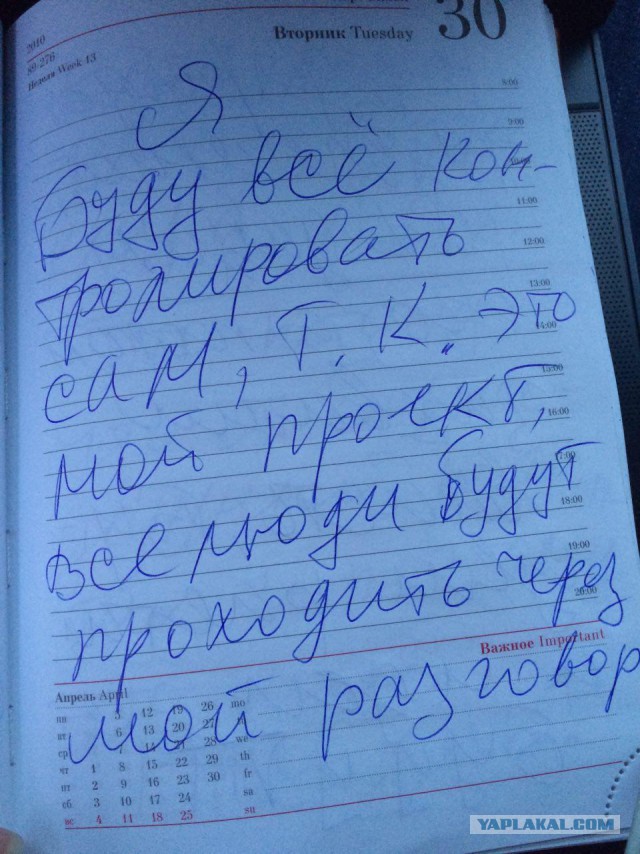 30
Вторник Tuesday
2010
89-276
Неделя Week 13
8:00
9:00
Я
буду всё кон-
11:00
тролировать
12:00
13:00
сам, т.к. это
14:00
15:00
мой проект,
16:00
17:00
все люди будут
18:00
19:00
проходить через
20:00
Важное Important
мой разговор
Апрель April
пн 5 12 19 26 mo
вт 6 13 20 27
ср 14 21 28 we
чт 1 8 15 22 29 th
пт 2 9 16 23 30 fr
сб 3 10 17 24 sa
вс 4 11 18 25 su
YAPLAKAL.COM